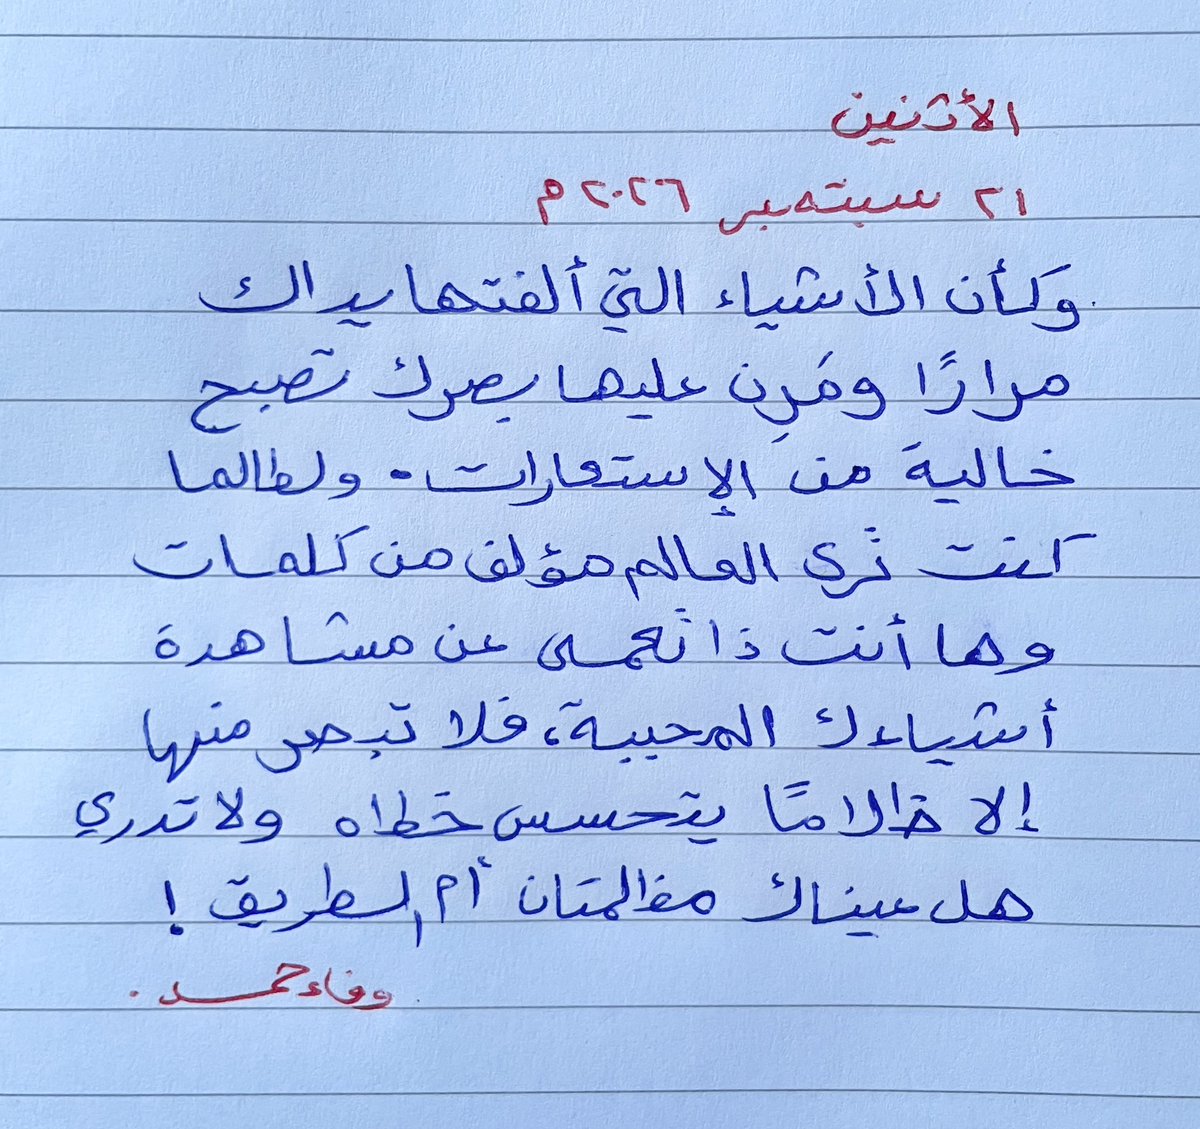 الأثنين
٢١ سبتمبر ٢٠٢٦ م
وَكأن الأشياء التي ألفتها يداك
مرارًا ومَرِن عليها بصرك تصبح
خالية من الإستعارات. ولطالما
كنت تَرى العالم مؤلف من كلمات
وها أنت ذا تَعمى عن مشاهدة
أشياءك المحببة، فلا تبصر منها
إلا ظلامًا يتحسس خطاه ولا تدري
هل عيناك مظلمتان أم الطريق !
وفاء حمد.